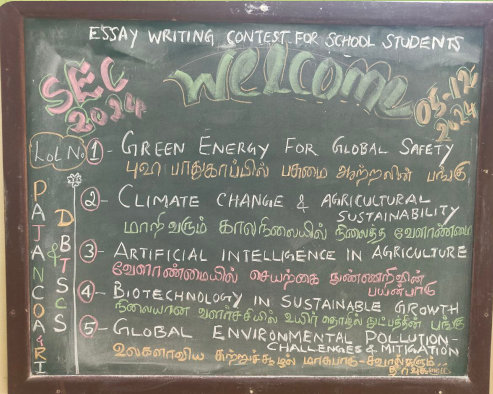 ESSAY WRITING CONTEST FOR SCHOOL STUDENTS
SEC
2024
WELCOME
05-12
2024
Lot No
1 - GREEN ENERGY FOR GLOBAL SAFETY
புவி பாதுகாப்பில் பசுமை ஆற்றலின் பங்கு
2 - CLIMATE CHANGE & AGRICULTURAL
SUSTAINABILITY
மாறிவரும் காலநிலையில் நிலைத்த வேளாண்மை
3 - ARTIFICIAL INTELLIGENCE IN AGRICULTURE
வேளாண்மையில் செயற்கை நுண்ணறிவின்
பயன்பாடு
4 - BIOTECHNOLOGY IN SUSTAINABLE GROWTH
நிலையான வளர்ச்சியில் உயிர் தொழில் நுட்பத்தின் பங்கு
5 - GLOBAL ENVIRONMENTAL POLLUTION-
CHALLENGES & MITIGATION
உலகளாவிய சுற்றுச்சூழல் மாசுபாடு - சவால்களும்
PAJANCOA&RI
DBT & SCS